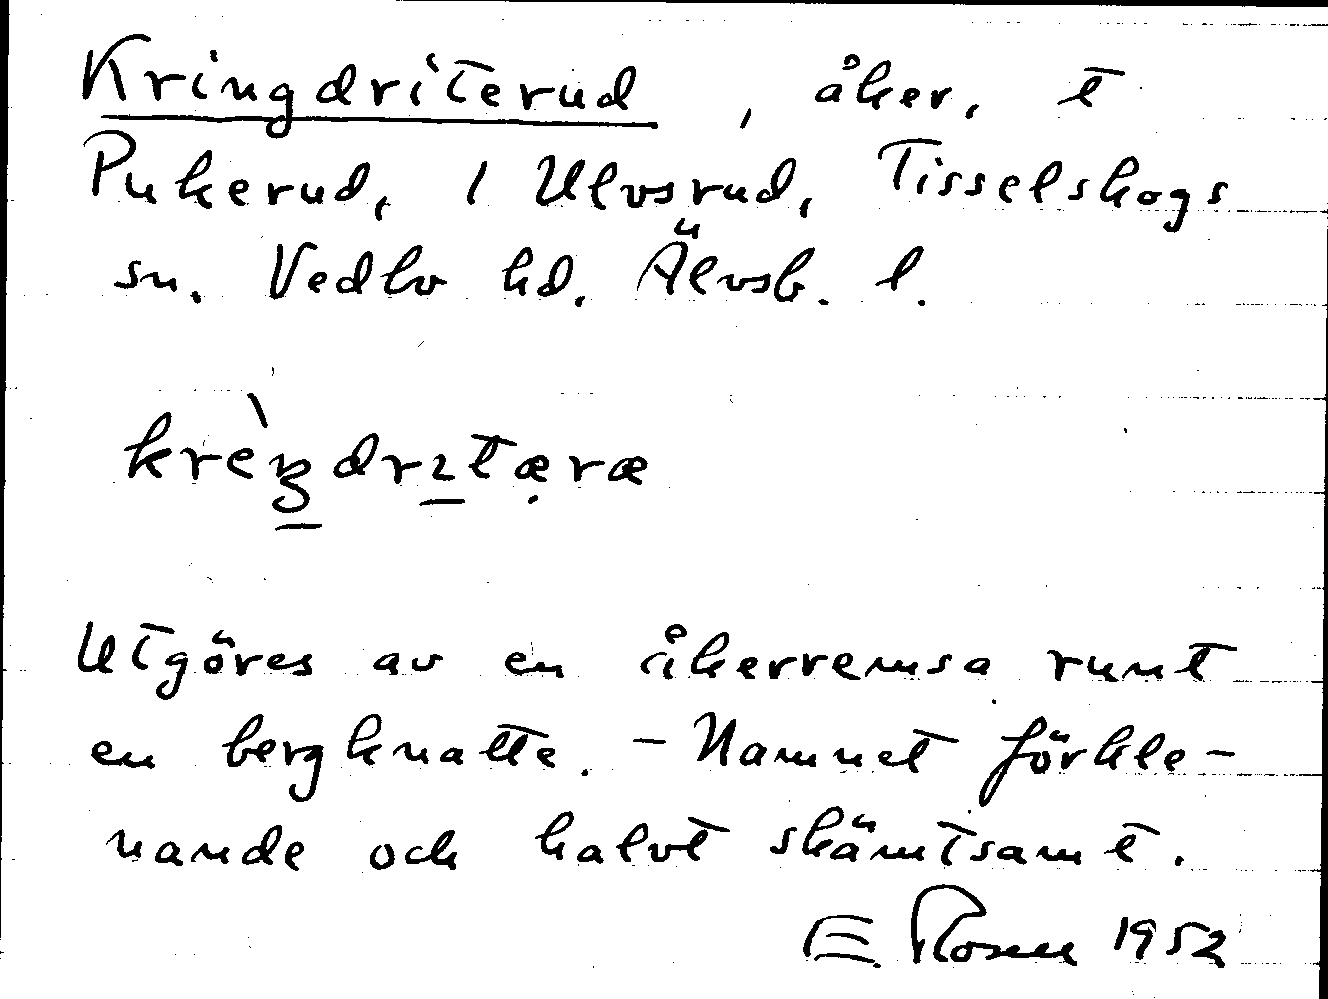 Kringdriterud, åker, t
Pukerud, 1 Ulvsrud, Tisselskogs
sn. Vedbo hd. Älvsb. l.
Utgöres av en åkerremsa runt
en bergknatte. - Namnet förkle-
nande och halvt skämtsamt.
E. Rosen 1952